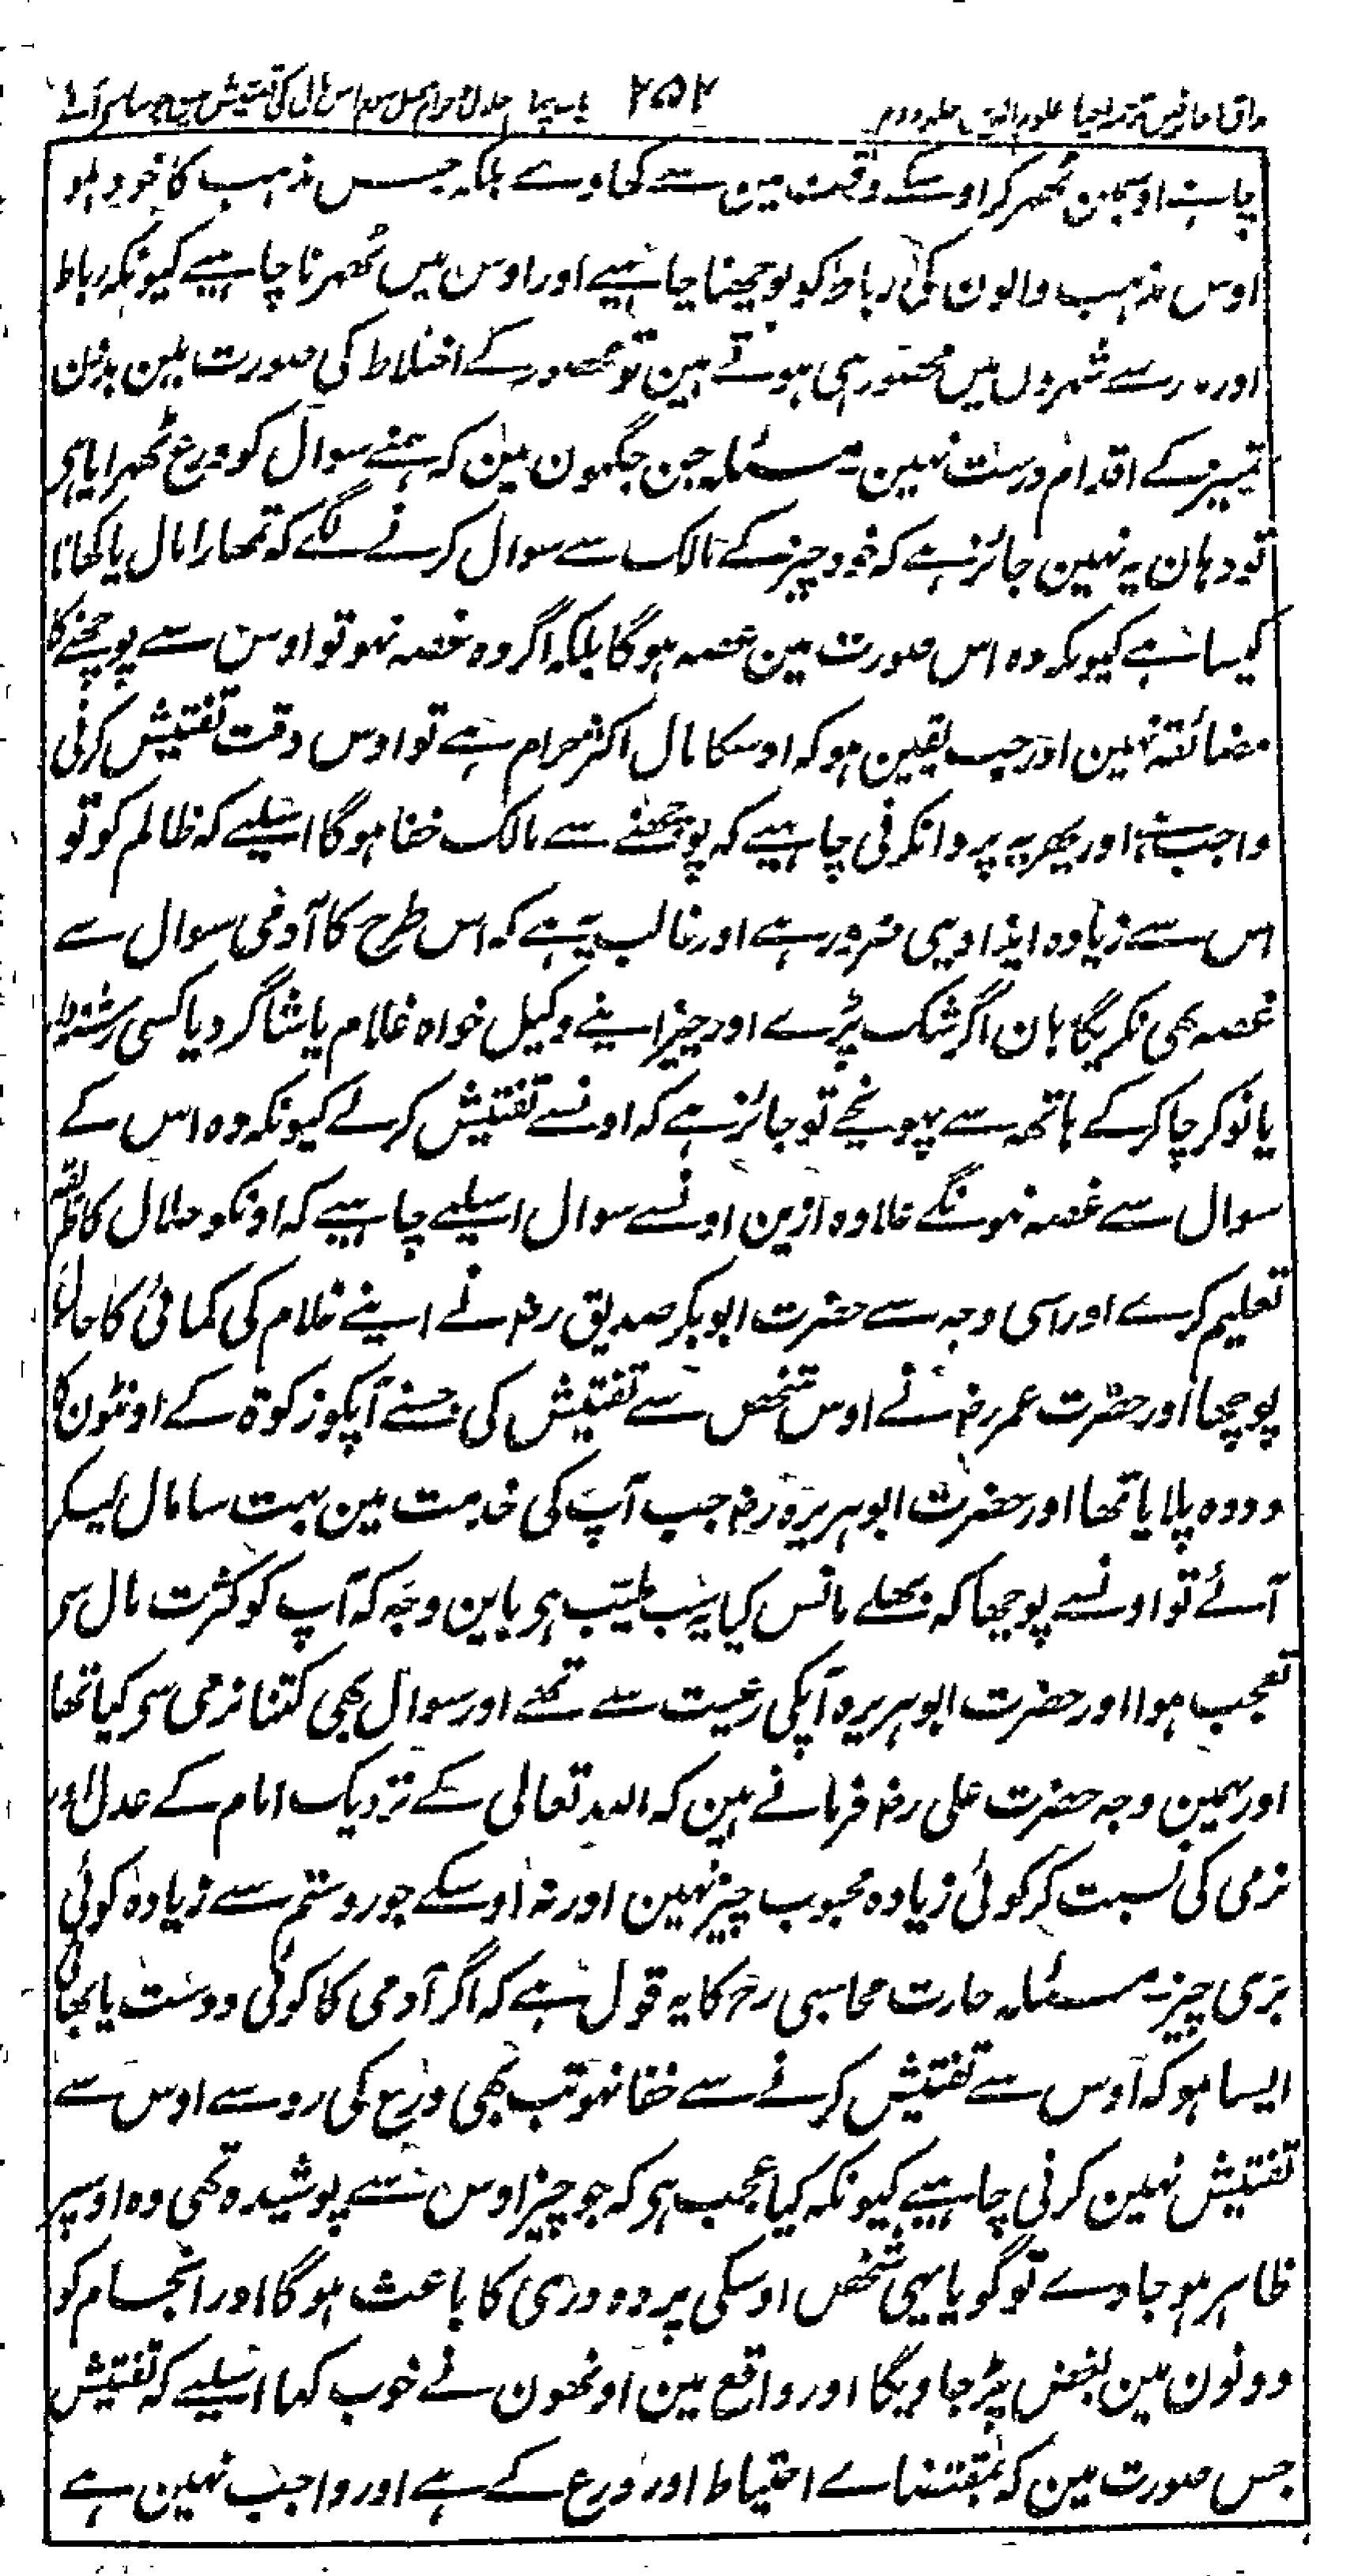 مذاق العارفین ترجمہ احیاء علوم الدین جلد دوم ۲۵۲ باب چہارم حلال و حرام فصل سوم اس حال کی تفتیش میں جو سامنے آئے
چاہے اوسمین ٹھہر کر اوسکے وقف مین سے کھاوے بلکہ جس مذہب کا خود ہو
اوس مذہب والون کی رباط کو پوچھنا چاہیے اور اوس میں ٹھہرنا چاہیے کیونکہ رباط
اور مدرسے شہروں میں محصور ہی ہوتے ہین تو محصور کے اختلاط کی صورت مین بدون
تمییز کے اقدام درست نہین مسئلہ جن جگہون مین کہ ہمنے سوال کو ورع ٹھہرایا ہی
تو وہان یہ نہین جائز ہے کہ خود چیز کے مالک سے سوال کرنے لگے کہ تمھارا مال یا کھانا
کیسا ہے کیونکہ وہ اس صورت مین غصہ ہوگا بلکہ اگر وہ غصہ نہو تو اوس سے پوچھنے کا
مضائقہ نہین اور جب یقین ہو کہ اوسکا مال اکثر حرام ہے تو اوس وقت تفتیش کرنی
واجب ہے اور پھر یہ پروا نکرنی چاہیے کہ پوچھنے سے مالک خفا ہوگا اسلیے کہ ظالم کو تو
اس سے زیادہ ایذا دیہی ضرور ہے اور غالب یہ ہے کہ اس طرح کا آدمی سوال سے
غصہ بھی نکریگا ہان اگر شک پڑے اور چیز اپنے وکیل خواہ غلام یا شاگرد یا کسی رشتہ دار
یا نوکر چاکر کے ہاتھہ سے پہونچے تو جائز ہے کہ اونسے تفتیش کر لے کیونکہ وہ اس کے
سوال سے غصہ نہونگے علاوہ ازین اونسے سوال اسلیے چاہیے کہ اونکو حلال کا طریقہ
تعلیم کرے اور اسی وجہ سے حضرت ابوبکر صدیق رضہ نے اپنے غلام کی کمائی کا حال
پوچھا اور حضرت عمر رضہ نے اوس شخص سے تفتیش کی جسنے آپکو زکوۃ کے اونٹون کا
دودہ پلایا تھا اور حضرت ابوہریرہ رضہ جب آپ کی خدمت مین بہت سا مال لیکر
آئے تو اونسے پوچھا کہ بھلے مانس کیا یہ سب طیّب ہی باین وجہ کہ آپ کو کثرت مال سی
تعجب ہوا اور حضرت ابوہریرہ آپکی رعیت سے تھے اور سوال بھی کتنا نرمی سی کیا تھا
اور بہمین وجہ حضرت علی رضہ فرماتے ہین کہ اللہ تعالی کے نزدیک امام کے عدل اور
نرمی کی نسبت کر کوئی زیادہ محبوب چیز نہین اور نہ اوسکے جور و ستم سے زیادہ کوئی
بری چیز ہے مسئلہ حارث محاسبی رح کا یہ قول ہے کہ اگر آدمی کا کوئی دوست یا بھائی
ایسا ہو کہ اوس سے تفتیش کرنے سے خفا نہو تب بھی ورع کی رو سے اوس سے
تفتیش نہین کرنی چاہیے کیونکہ کیا عجب ہی کہ جو چیز اوس سے پوشیدہ تھی وہ اوسپر
ظاہر ہو جاوے تو گویا یہی شخص اوسکی پردہ دری کا باعث ہوگا اور انجام کو
دونون مین بغض پڑ جاویگا اور واقع مین اونھون نے خوب کہا اسلیے کہ تفتیش
جس صورت مین کہ بمقتضاے احتیاط اور ورع کے ہے اور واجب نہین ہے